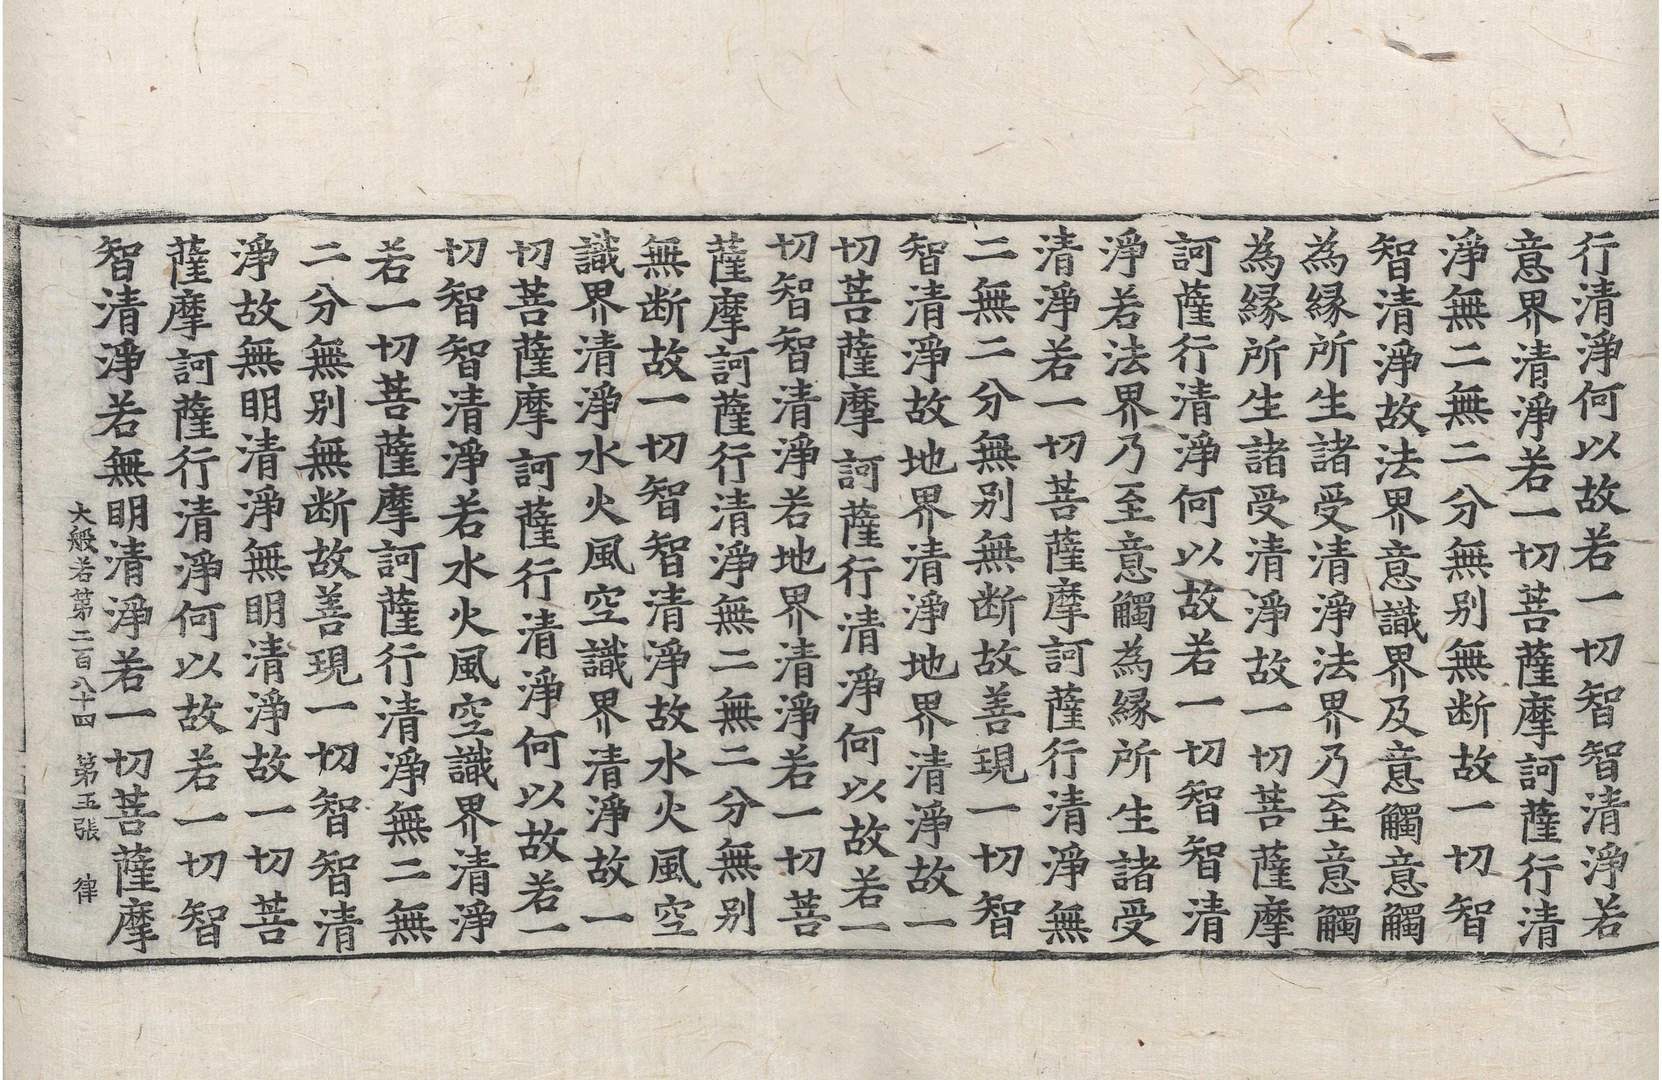 行清淨何以故若一切智智清淨若
意界清淨若一切菩薩摩訶薩行清
淨無二無二分無別無断故一切智
智清淨故法界意識界及意觸意觸
為縁所生諸受清淨法界乃至意觸
為縁所生諸受清淨故一切菩薩摩
訶薩行清淨何以故若一切智智清
淨若法界乃至意觸為縁所生諸受
清淨若一切菩薩摩訶薩行清淨無
二無二分無別無断故善現一切智
智清淨故地界清淨地界清淨故一
切菩薩摩訶薩行清淨何以故若一
切智智清淨若地界清淨若一切菩
薩摩訶薩行清淨無二無二分無別
無断故一切智智清淨故水火風空
識界清淨水火風空識界清淨故一
切菩薩摩訶薩行清淨何以故若一
切智智清淨若水火風空識界清淨
若一切菩薩摩訶薩行清淨無二無
二分無別無断故善現一切智智清
淨故無明清淨無明清淨故一切菩
薩摩訶薩行清淨何以故若一切智
智清淨若無明清淨若一切菩薩摩
大般若第二百八十四 第五張 律